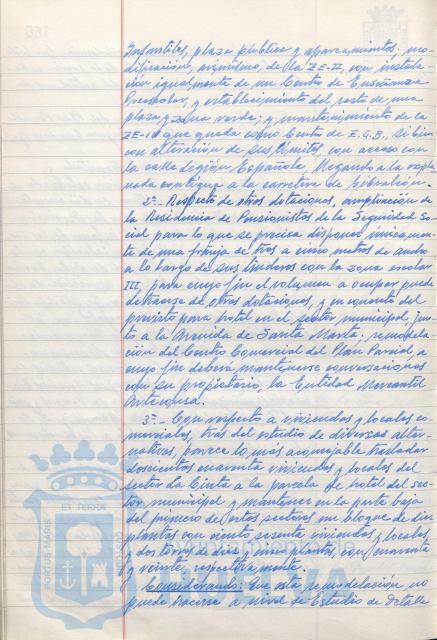 Infantiles, plaza pública y aparcamientos; mo-
dificación, asimismo, de la ZE-II, con instala-
ción igualmente de un Centro de Enseñanza
Preescolar, y establecimiento del resto de una
plaza y zona verde; y mantenimiento de la
ZE-III que queda como Centro de E.G.B., si bien
con alteración de sus límites, con acceso por
la calle Legión Española llegando a la expla-
nada contigua a la carretera de Gibraleón.
2º.- Respecto de otras dotaciones, ampliación de
la Residencia de Pensionistas de la Seguridad So-
cial para lo que se precisa disponer únicamen-
te de una franja de tres a cinco metros de ancho
a lo largo de sus linderos con la zona escolar
III, para cuyo fin el volumen a ocupar puede
detraerse de otras dotaciones, y en concreto del
previsto para hotel en el sector municipal, jun-
to a la Avenida de Santa Marta; remodela-
ción del Centro Comercial del Plan Parcial, a
cuyo fin deberá mantenerse conversaciones
con su propietario, la Entidad Mercantil
3º.- Con respecto a viviendas y locales co-
merciales, tras del estudio de diversas alter-
nativas, parece lo más aconsejable trasladar
doscientas cuarenta viviendas y locales del
sector La Cinta a la parcela de hotel del sec-
tor municipal y mantener en la parte baja
del primero de estos sectores un bloque de diez
plantas con ciento sesenta viviendas y locales,
y dos torres de diez y cinco plantas, con cuarenta
y veinte, respectivamente.
Considerando: Que esta remodelación no
puede hacerse a nivel de Estudio de Detalle
PORTUS MARIS
ET TERRA
CUSTODIA